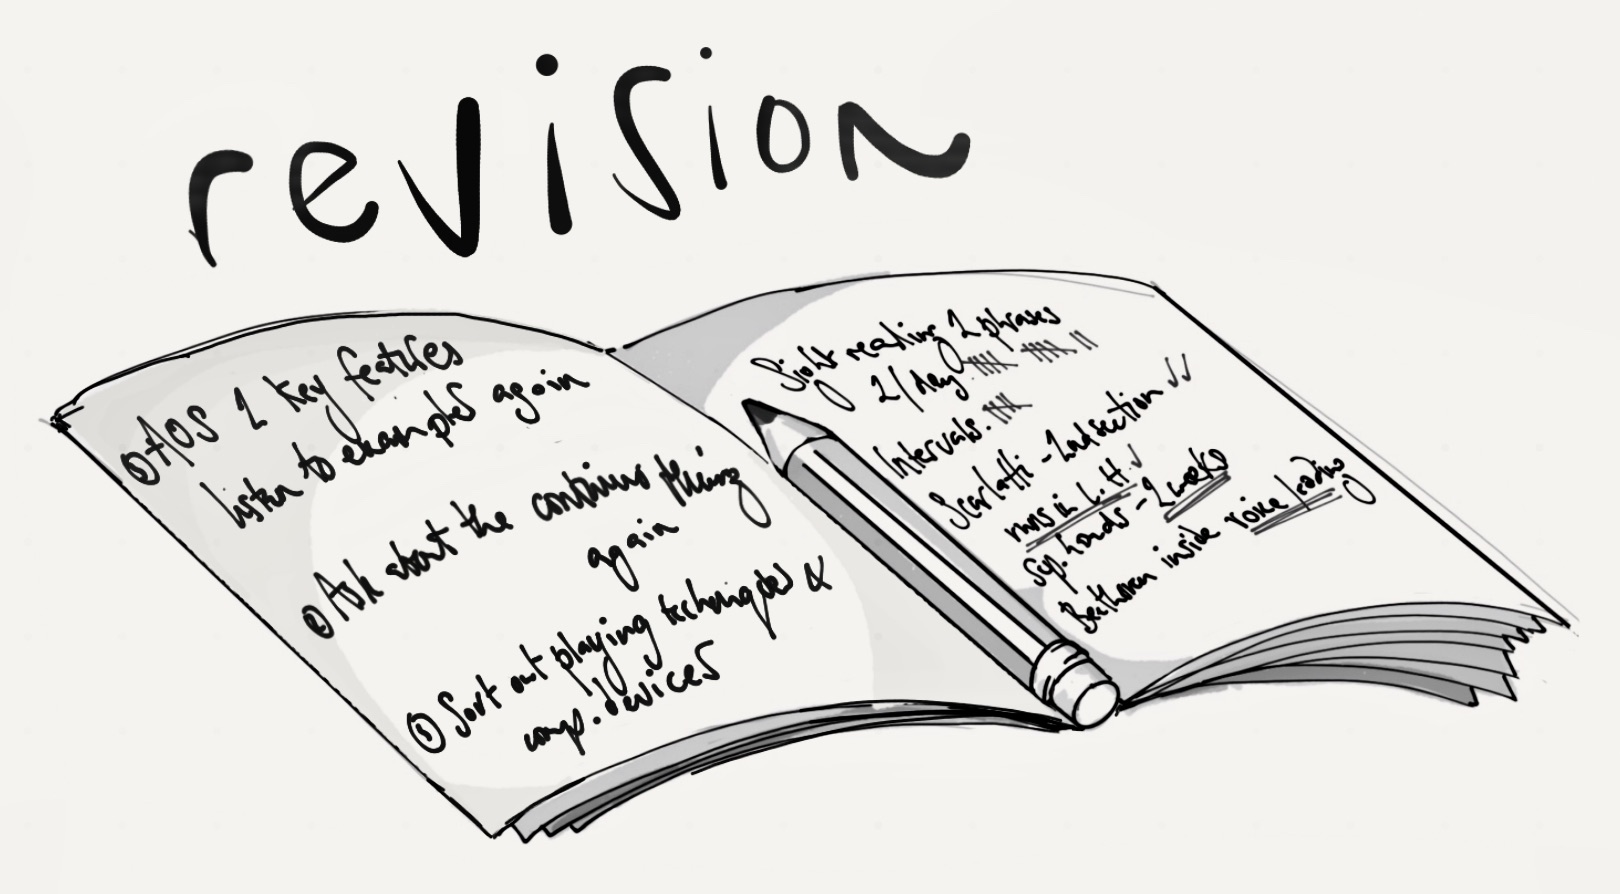 revision
① AOS 2 key features
listen to examples again
② Ask about the continuo thing
again
③ Sort out playing techniques &
comp. devices
Sight reading 2 phrases
2/day.
Intervals.
Scarlatti - 2nd section ✓✓
runs in L.H. ✓
Sep. hands - 2 weeks
Beethoven inside voice leading